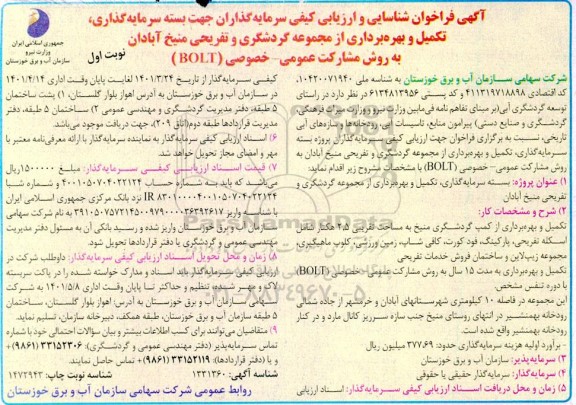 آگهی فراخوان شناسایی و ارزیابی کیفی سرمایه‌گذاران جهت بسته سرمایه‌گذاری،
تکمیل و بهره‌برداری از مجموعه گردشگری و تفریحی منیخ آبادان
به روش مشارکت عمومی- خصوصی (BOLT)
نوبت اول
جمهوری اسلامی ایران
وزارت نیرو
سازمان آب و برق خوزستان
شرکت سهامی سازمان آب و برق خوزستان به شناسه ملی ۱۰۴۲۰۰۷۱۹۴۰،
کد اقتصادی ۴۱۱۳۱۹۷۱۸۸۹۸ و کد پستی ۶۱۳۴۸۱۳۹۵۶ در نظر دارد در راستای
توسعه گردشگری آبی (بر مبنای تفاهم نامه فی‌مابین وزارت نیرو و وزارت میراث فرهنگی،
گردشگری و صنایع دستی) پیرامون منابع، تاسیسات آبی، رودخانه‌ها و سازه‌های آبی
تاریخی، نسبت به برگزاری فراخوان جهت ارزیابی کیفی سرمایه‌گذاران پروژه بسته
سرمایه‌گذاری، تکمیل و بهره‌برداری از مجموعه گردشگری و تفریحی منیخ آبادان به
روش مشارکت عمومی- خصوصی (BOLT) با مشخصات مشروح زیر اقدام نماید:
۱) عنوان پروژه: بسته سرمایه‌گذاری، تکمیل و بهره‌برداری از مجموعه گردشگری و
تفریحی منیخ آبادان
۲) شرح و مشخصات کار:
تکمیل و بهره‌برداری از کمپ گردشگری منیخ به مساحت تقریبی ۲.۵ هکتار شامل
اسکله تفریحی، پارکینگ، فود کورت، کافی شاپ، زمین ورزشی، کلوپ ماهیگیری،
مجموعه زیپ‌لاین و ساختمان فروش خدمات تفریحی
تکمیل و بهره‌برداری به مدت ۱۵ سال به روش مشارکت عمومی- خصوصی (BOLT)
با دوره تنفس مشخص.
این مجموعه در فاصله ۱۰ کیلومتری شهرستانهای آبادان و خرمشهر از جاده شمالی
رودخانه بهمنشیر در انتهای روستای منیخ جنب سازه سرریز کانال مارد و در کنار
رودخانه بهمنشیر واقع شده است.
- برآورد اولیه هزینه سرمایه‌گذاری حدود: ۳۷۷.۶۹ میلیون ریال
۳) سرمایه‌پذیر: سازمان آب و برق خوزستان
۴) سرمایه‌گذار: سرمایه‌گذار حقیقی یا حقوقی
۵) زمان و محل دریافت اسناد ارزیابی کیفی سرمایه‌گذار: اسناد ارزیابی
کیفی سرمایه‌گذار از تاریخ ۱۴۰۱/۳/۲۴ لغایت پایان وقت اداری ۱۴۰۱/۴/۱۴
در سازمان آب و برق خوزستان به آدرس اهواز بلوار گلستان، ۱) پشت ساختمان
۵ طبقه، دفتر مدیریت گردشگری و مهندسی عمومی ۲) ساختمان ۵ طبقه، دفتر
مدیریت قراردادها طبقه دوم(اتاق ۲۰۹)، جهت دریافت موجود می‌باشد.
۶) اسناد ارزیابی کیفی سرمایه‌گذار به نماینده سرمایه‌گذار با ارائه معرفی‌نامه معتبر با
مهر و امضای مجاز تحویل خواهد شد.
۷) قیمت اسناد ارزیابی کیفی سرمایه‌گذار: مبلغ ۱۵۰۰۰۰۰ ریال
می‌باشد که باید به شماره حساب ۴۰۰۱۰۵۰۷۰۴۰۲۲۱۲۴ و شماره شبا
نزد بانک مرکزی جمهوری اسلامی ایران
به نام شرکت سهامی
سازمان آب و برق خوزستان واریز شده و رسید بانکی آن به مسئول دفتر مدیریت
مهندسی عمومی و گردشگری یا دفتر قراردادها تحویل شود.
۸) زمان و محل تحویل اسناد ارزیابی کیفی سرمایه‌گذار: داوطلب شرکت در
ارزیابی کیفی سرمایه‌گذار باید اسناد و مدارک خواسته شده را در پاکت سربسته
لاک و مهر شده تنظیم و حداکثر تا پایان وقت اداری ۱۴۰۱/۵/۸ به شرکت
سهامی سازمان آب و برق خوزستان به آدرس: اهواز بلوار گلستان، ساختمان
۵ طبقه سازمان آب و برق خوزستان، طبقه همکف، دبیرخانه سازمان، تسلیم نماید.
۹) متقاضیان می‌توانند برای کسب اطلاعات بیشتر و بیان سؤالات احتمالی خود با شماره
تماس سرمایه‌پذیر (دفتر مهندسی عمومی و گردشگری): ۳۳۱۵۲۳۰۶ (۹۸۶۱+)
و یا (دفتر قراردادها): ۳۳۱۵۲۱۱۹ (۹۸۶۱+) تماس حاصل نمایند.
شناسه آگهی: ۱۳۳۱۳۶۰ شناسه نوبت چاپ: ۱۴۷۲۹۴۳
روابط عمومی شرکت سهامی سازمان آب و برق خوزستان